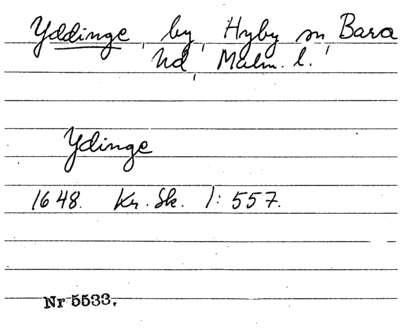 Yddinge, by, Hyby sn, Bara
hd, Malm. l.
Ydinge
1648. Kr. Sk. 1: 557.
Nr 5533.